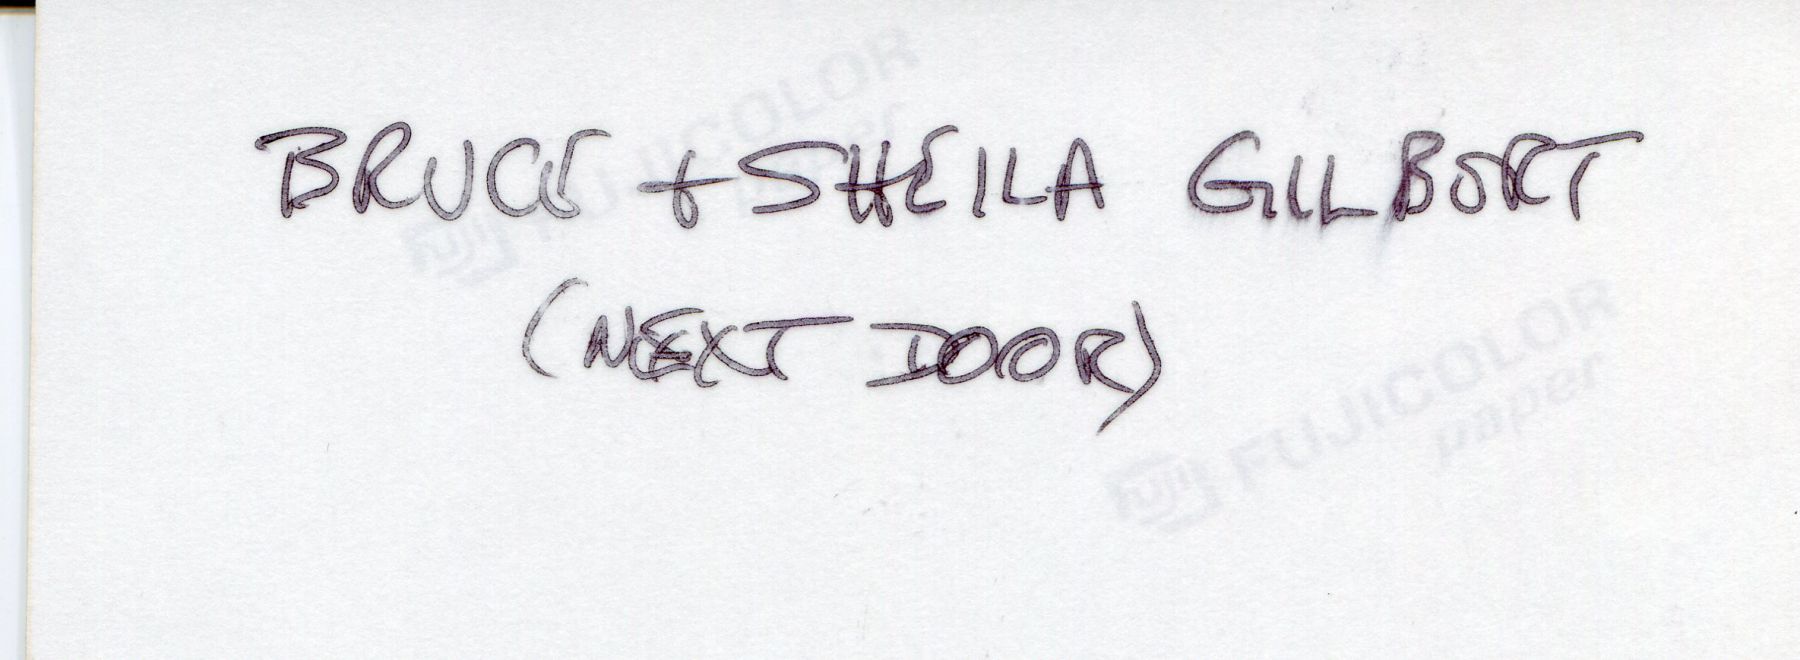 FUJICOLOR
paper
BRUCE + SHEILA GILBERT
FUJI
(NEXT DOOR)
FUJICOLOR
paper
FUJI